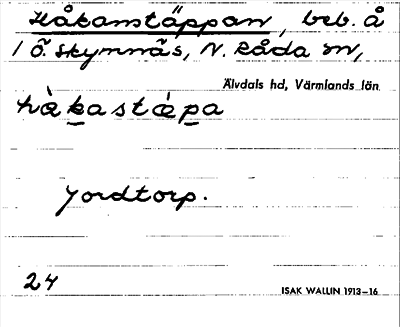 Håkanstäppan, beb. å
1 Ö. Skymnäs, N. Råda sn,
Älvdals hd, Värmlands län
hà̀kastá̀pa
Jordtorp.
24
ISAK WALLIN 1913–16